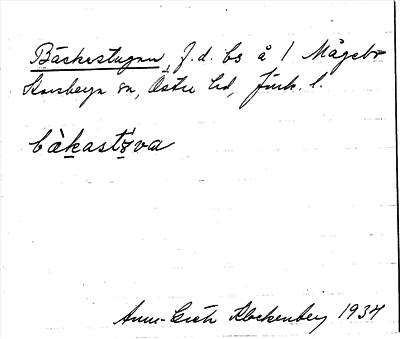 Bäckestugan, f.d. bs å 1 Mågebo
Korsberga sn, Östra hd, Jönk. l.
bàkastɤ́va
Ann-Greta Klockenberg 1934